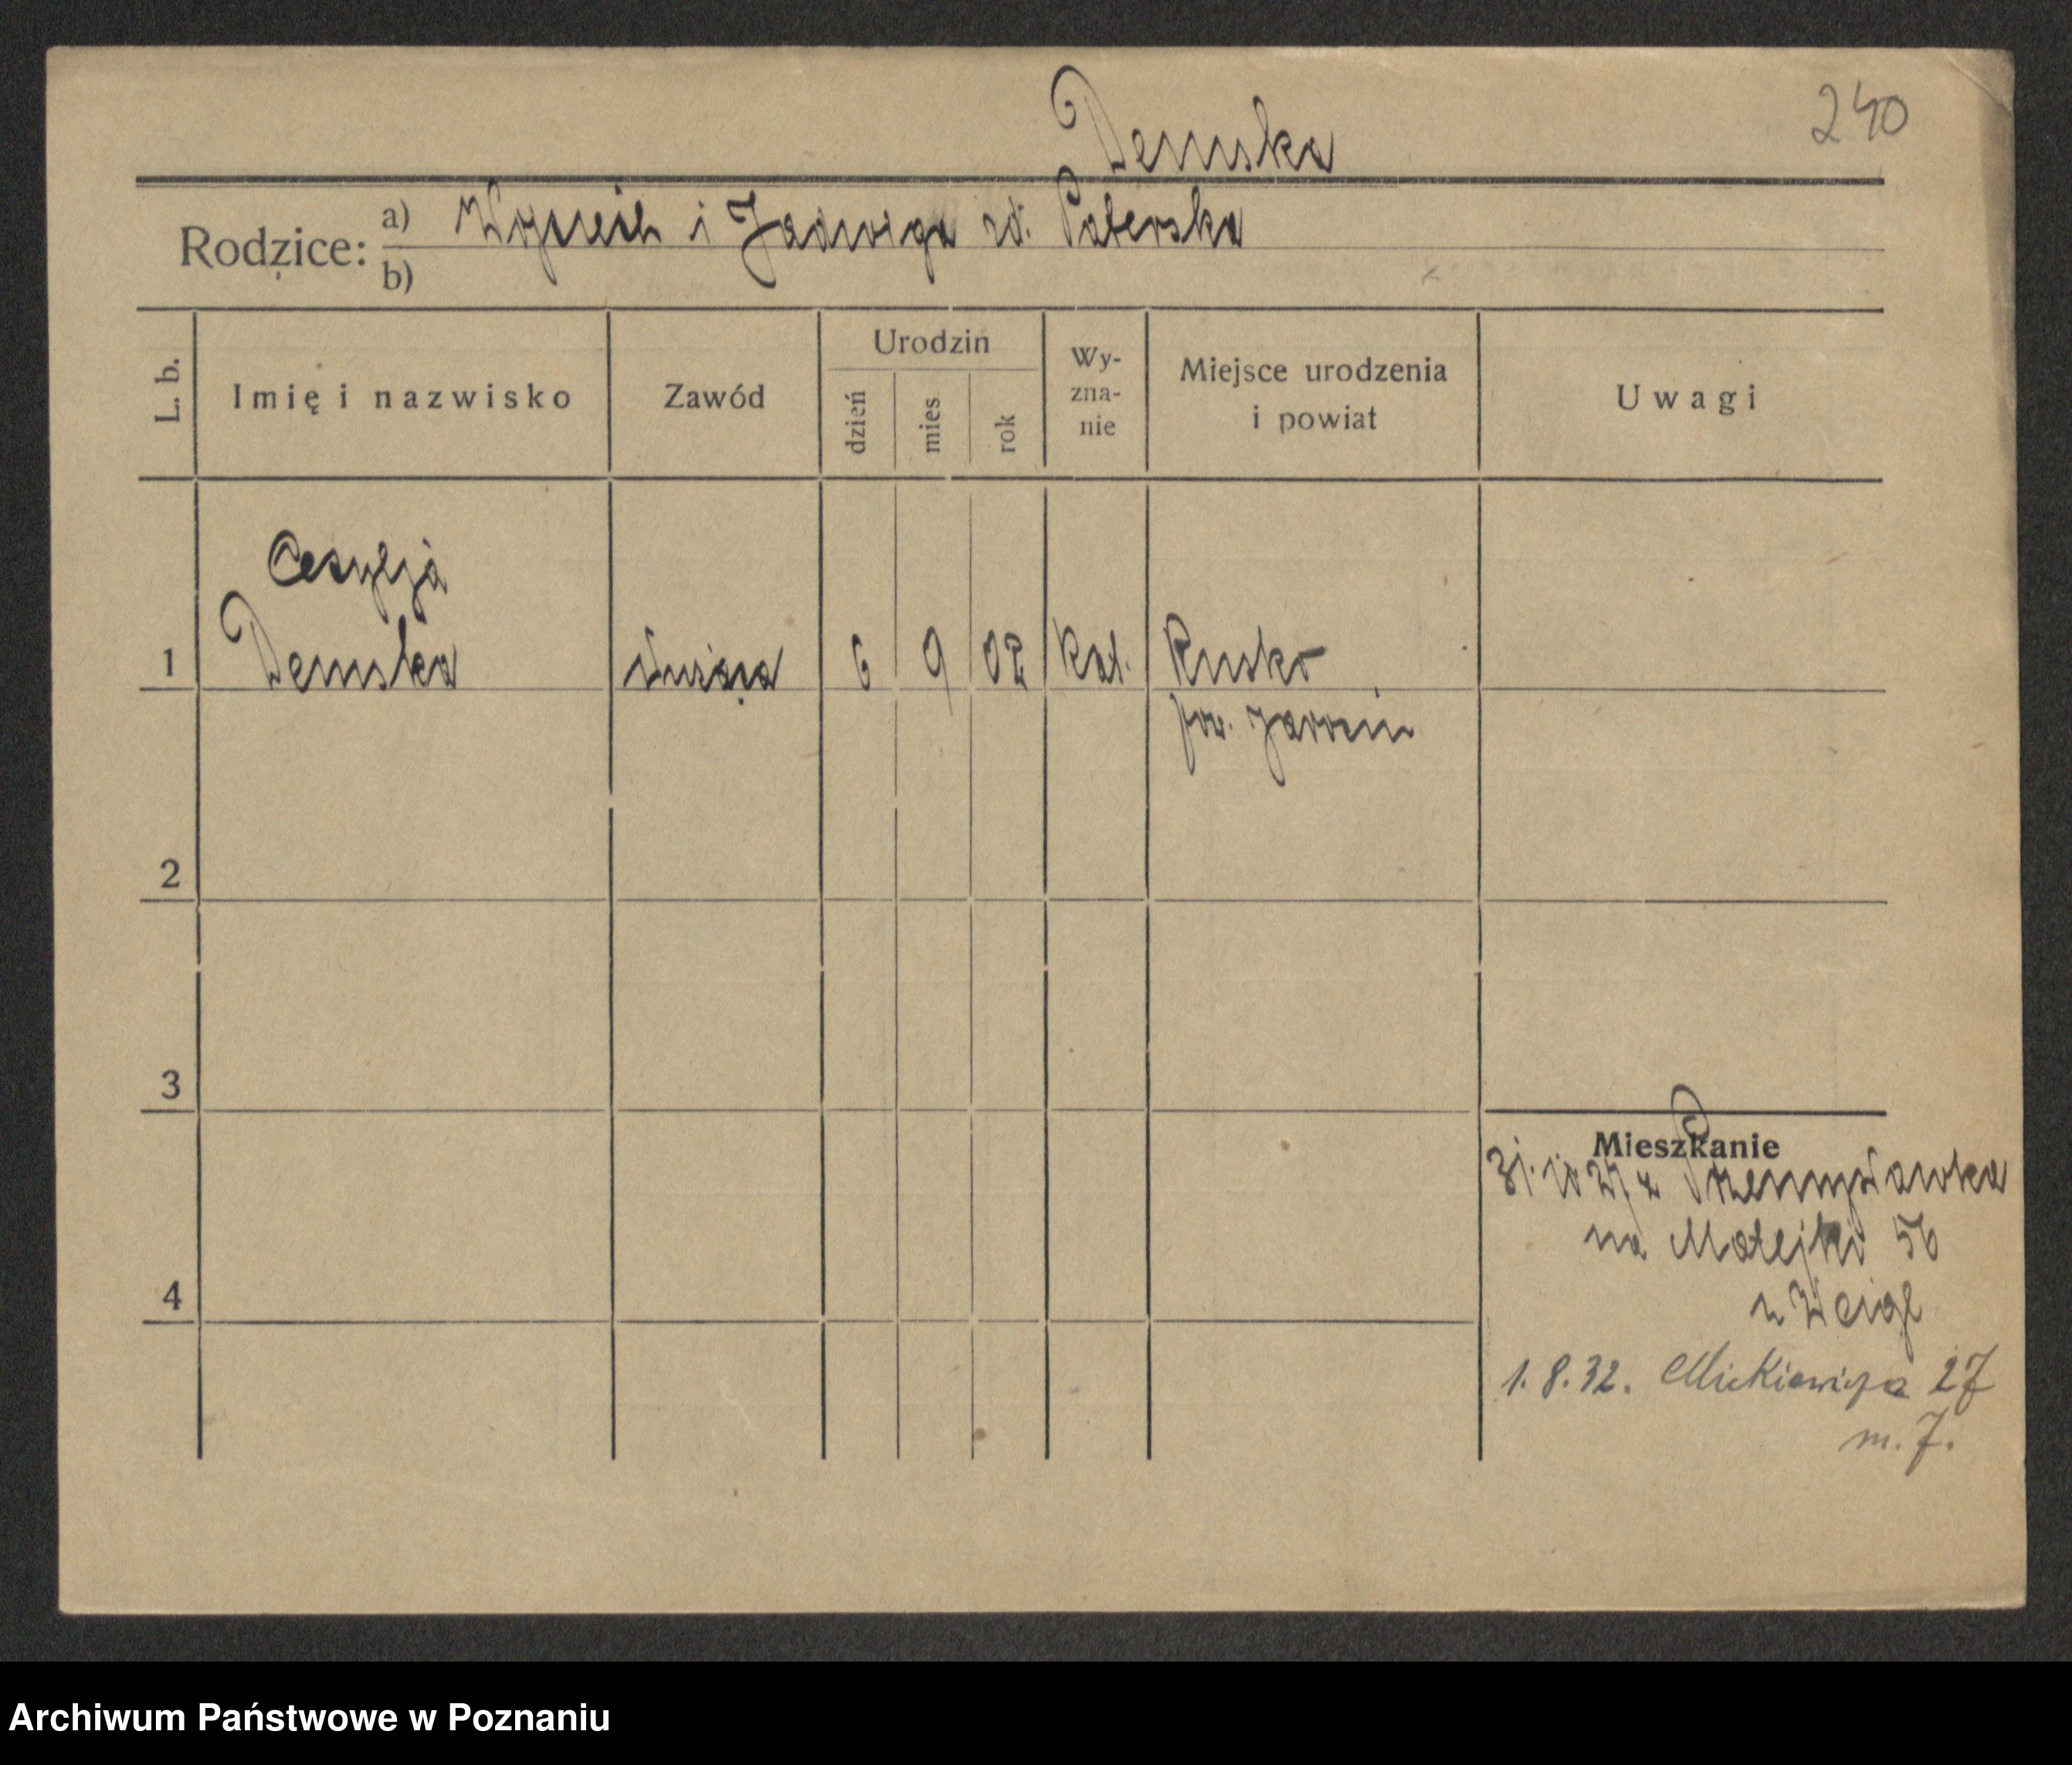 240
Demska
Rodzice: a) Wojciech i Jadwiga zd. Paterska
b)
L. b.
Imię i nazwisko
Zawód
Urodzin
dzień
mies.
rok
Wy-
zna-
nie
Miejsce urodzenia
i powiat
Uwagi
Cecylja
1 Demska służąca 6 9 02 kat. Rusko
pow. Jarocin
2
3
Mieszkanie
31. z Przemysławka
na Matejki 56
u Weigl
4
1.8.32. Mickiewicza 27
m. 7.
Archiwum Państwowe w Poznaniu